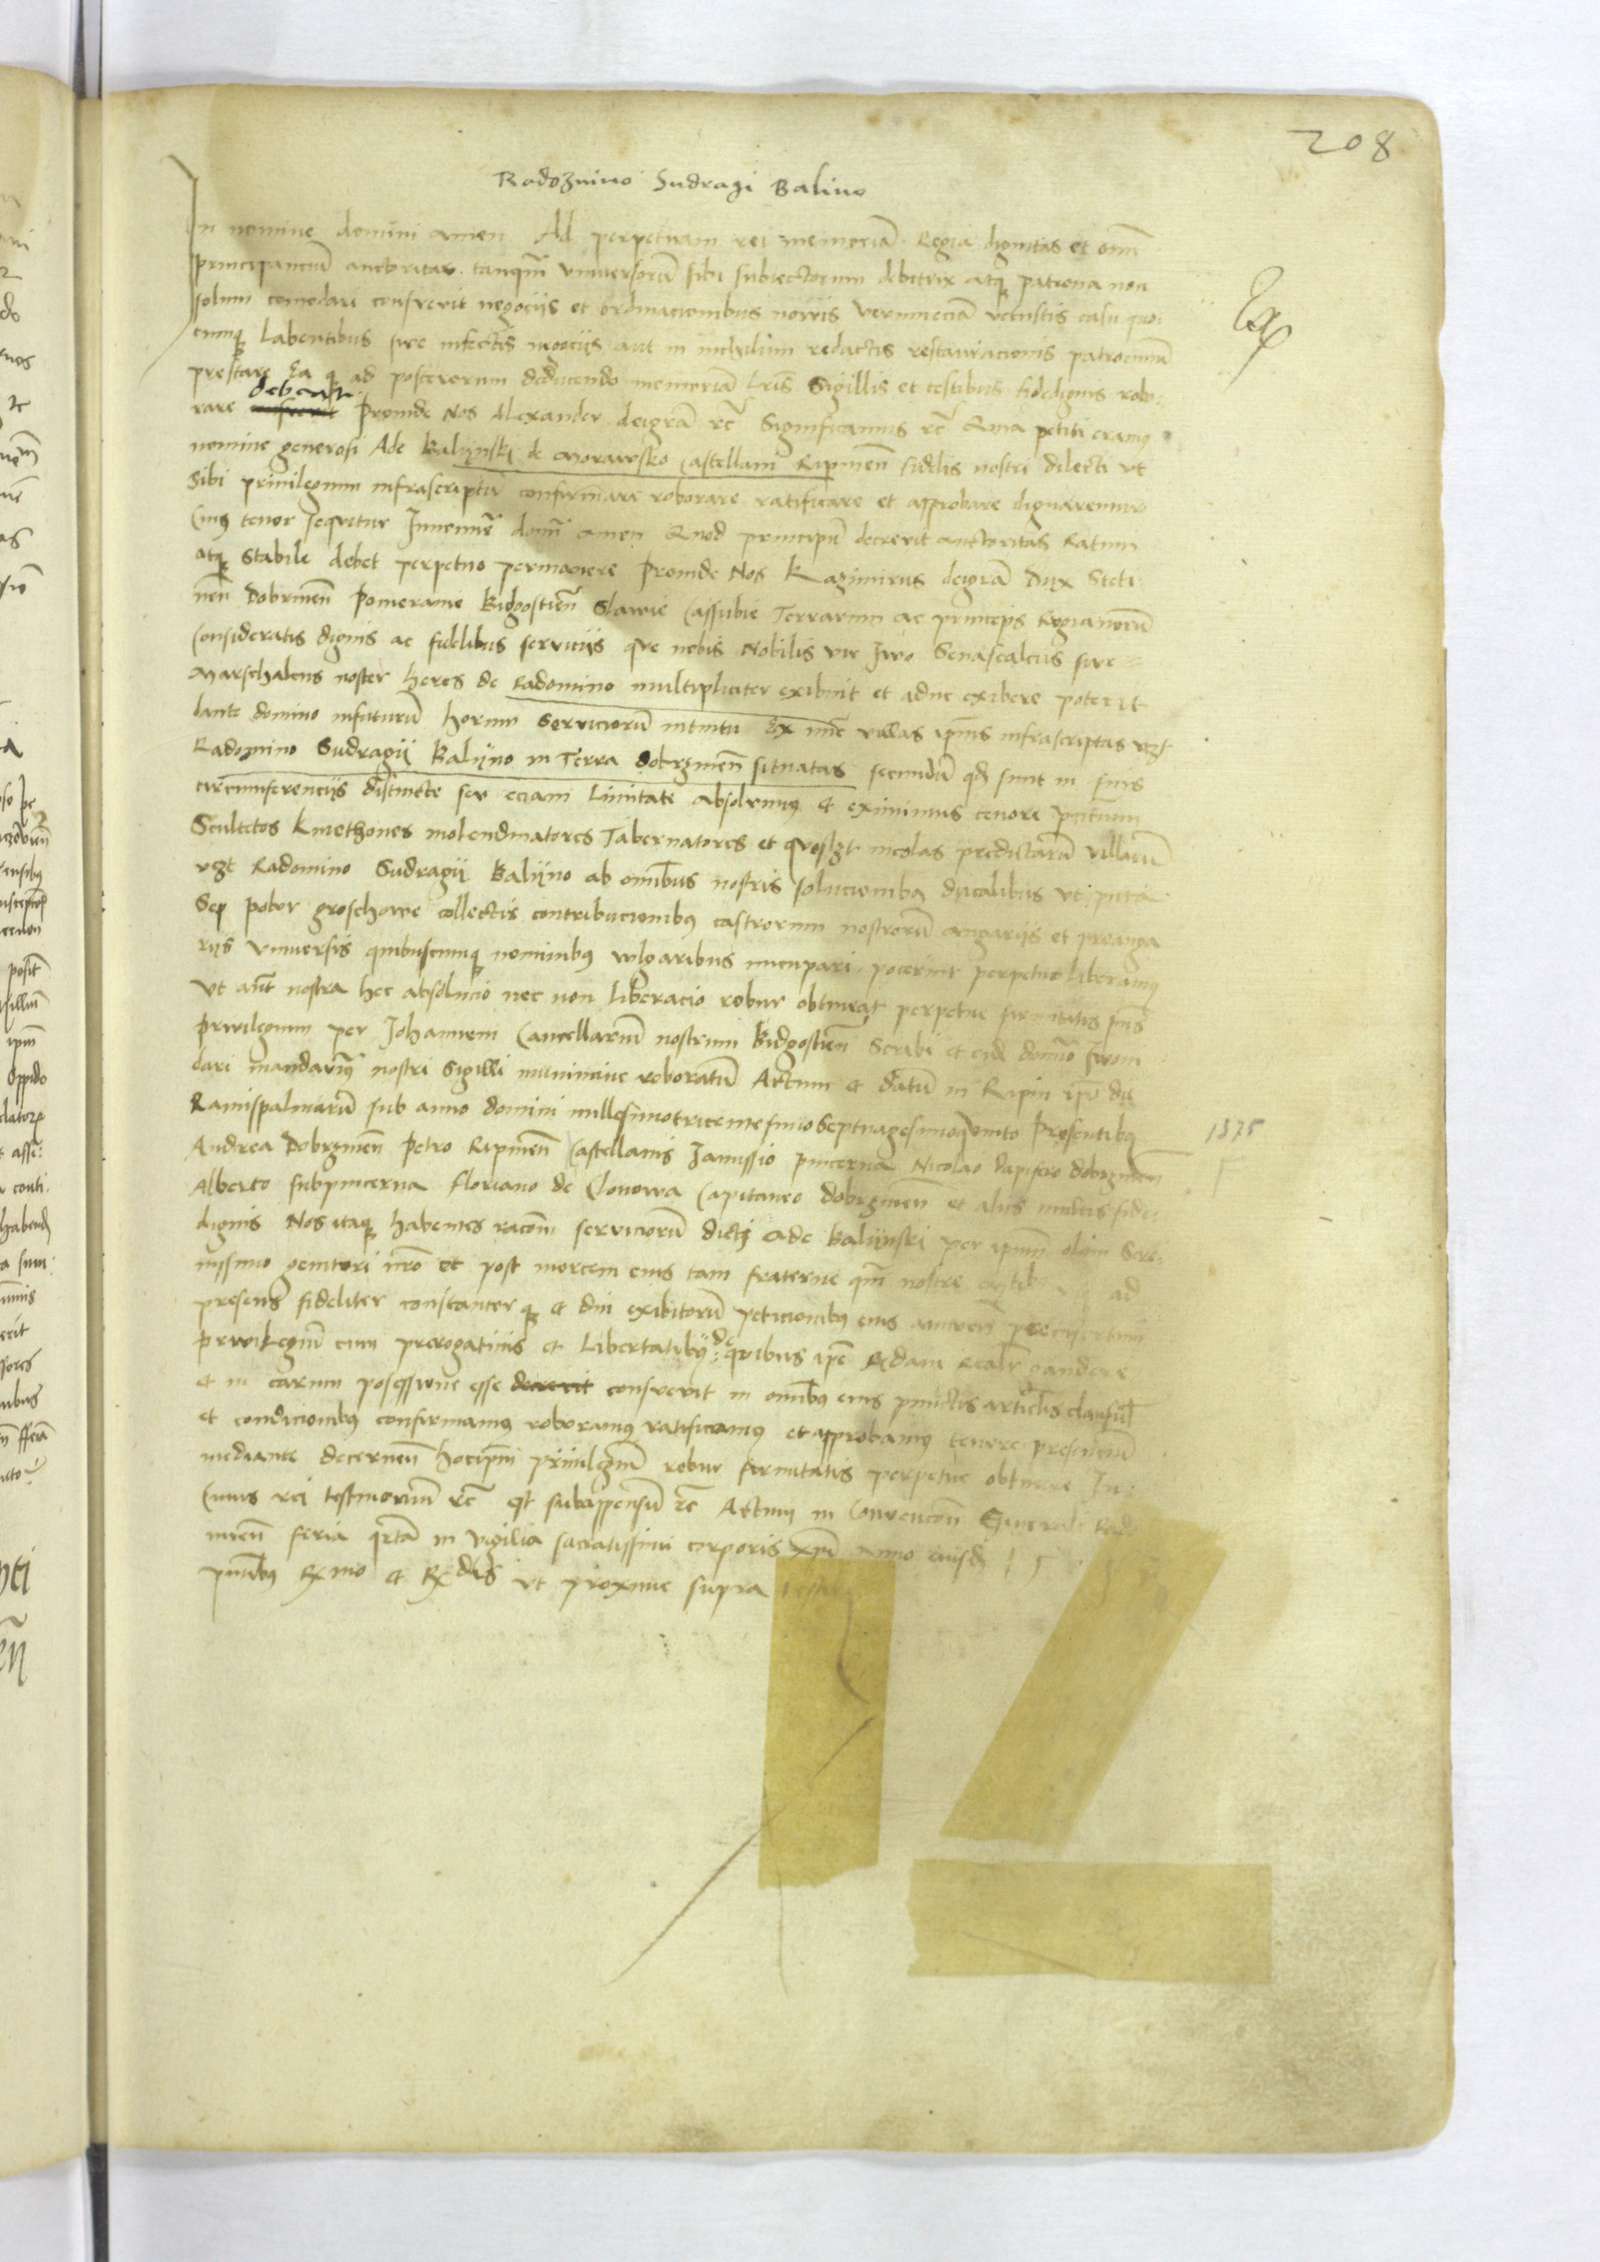 208
Radoznino Sudragi Balino
In nomine domini amen Ad perpetuam rei memoriā Regia dignitas et omnī
principanciū auctoritas tanq̃m universorū sibi subiectorum debitrix atq̃ patrona non
solum comodari consverit negociis et ordinacionibus novis verumeciā vetustis casu quo
cumq̃ labentibus sive infectis negociis aut in nichilum redactis restauracionis patrociniū
prestare Ea q̃ ad posterorum deducendo memoriam lr̃is Sigillis et testibus fidedignis robo
rare debent Proinde Nos Alexander deigrā rc̃ Significamus rc̃ Quia petiti eramus
nomine generosi Ade Balijnskj de Morawsko Castellani Ripinen̄ fidelis nostri dilecti ut
sibi privilegium infrascriptū confirmare roborare ratificare et approbare dignaremur
Cuius tenor sequitur Innomīe domī amen Quod principū decrevit auctoritas Ratum
atq̃ stabile debet perpetuo permanere Proinde Nos Kazimirus deigrā Dux Steti
nen̄ Dobrinen̄ Pomeranie Bidgostien̄ Slawie Cassubie Terrarum ac princeps Rugianorū
Consideratis dignis ac fidelibus serviciis que nobis Nobilis vir Iwo Senascalcus sive
Marschalcus noster heres de Radomino multipliciter exibuit et aduc exibere poterit
dante domino infuturū horum Serviciorū intuitu Ex nūc villas ipius infrascriptas vzt
Radomino Sudragij Balijno in Terra Dobrzinen̄ situatas secundū qd̄ sunt in suis
circumferencijs distincte seu eciam limitate absolvimus et eximimus tenore pn̄tium
Scultetos Kmethones molendinatores Tabernatores et quoslzt incolas predictarū villarū
vzt Radomino Sudragij Balijno ab omībus nostris solucionibus ducalibus vt puta
Sep pobor groschowe collectis contribucionibus castrorum nostrorū angariis et preanga
riis Universis quibuscumq̃ nominibus vulgaribus nuncupari poterint perpetuo liberamus
Vt aūt nostra hec absolucio nec non liberacio robur obtineat perpetue firmitatis pn̄s
Privilegium per Johannem Cancellariū nostrum Bidgostien̄ Scribi et eid domīo Iwoni
dari mandavimus nostri Sigilli munimine roboratū Actum et datū in Ripin ipō die
Ramispalmarū sub anno domini millesimotricentesimoseptuagesimoquinto Presentibus
1375
Andrea Dobrzinen̄ Petro Ripinen̄ Castellanis Janussio pincerna Nicolao dapifero dobrzinen̄
Alberto subpincerna Floriano de Clonowa Capitaneo Dobrzinen̄ et aliis multis fide
dignis Nos itaq̃ habentes racōnem serviciorū dicti Ade Balijnski per ipsum olim Sere
nissimo genitori nr̃o et post mortem eius tam fraterne q̃m nostre ad
presens fideliter constanter q̃ et diu exibitorū peticionibus eius
privilegiū cum prerogativis et libertatibus de quibus ipē gaudere
et in earum posessione esse decrevit consverit in omībus eius punctis articlis clausul̄
et condicionibus confirmamus roboramus ratificamus et approbamus tenore presenciū
mediante decernen̄ hocipm̄ privilegiū robur firmitatis perpetue obtinere In
Cuius rei testimoniū rc̃ qt subappensū rc̃ Actum in Convencōne General
feria qrta in vigilia sacratissimi corporis xp̄i anno eiusd̄
pn̄tibus ut proxime supra